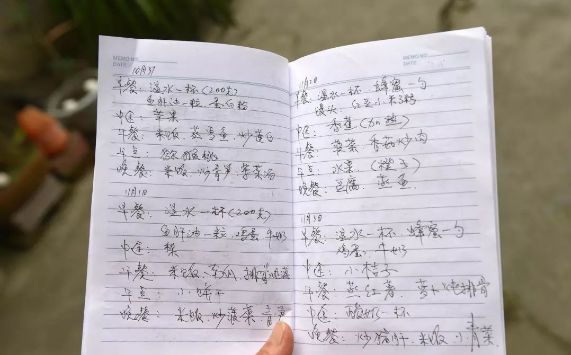 MEMO NO.
DATE
10月31
早餐: 温水一杯(200克)
鱼肝油一粒 蛋白粉
中途: 苹果
午餐: 米饭 蒸鸡蛋, 炒
午点: 猕猴桃
晚餐: 米饭 炒青笋 紫菜汤
11月1日
早餐: 温水一杯(200克)
鱼肝油一粒 鸡蛋 牛奶
中途: 梨
午餐: 米饭 排骨
午点: 小饼干
晚餐: 米饭, 炒菠菜,
MEMO NO.
DATE
11月2日
早餐: 温水一杯 蜂蜜一勺
馒头 红豆小米粥
中途: 香蕉(加热)
午餐 菠菜 香菇炒肉
午点: 水果(橙子)
晚餐: 豆腐 蒸蛋
11月3日
早餐: 温水一杯, 蜂蜜一勺
鸡蛋, 牛奶
中途: 小桔子
午餐: 蒸红薯, 萝卜炖排骨
中途: 酸奶一杯
晚餐: 炒猪肝, 米饭 小青菜